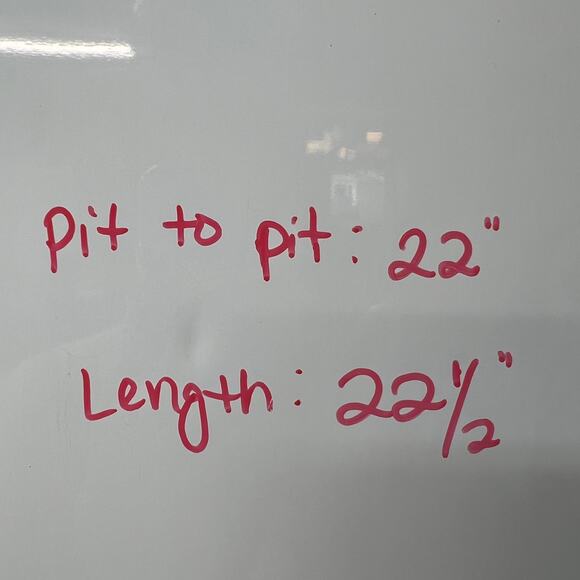 Pit to pit: 22"
Length: 22 1/2"